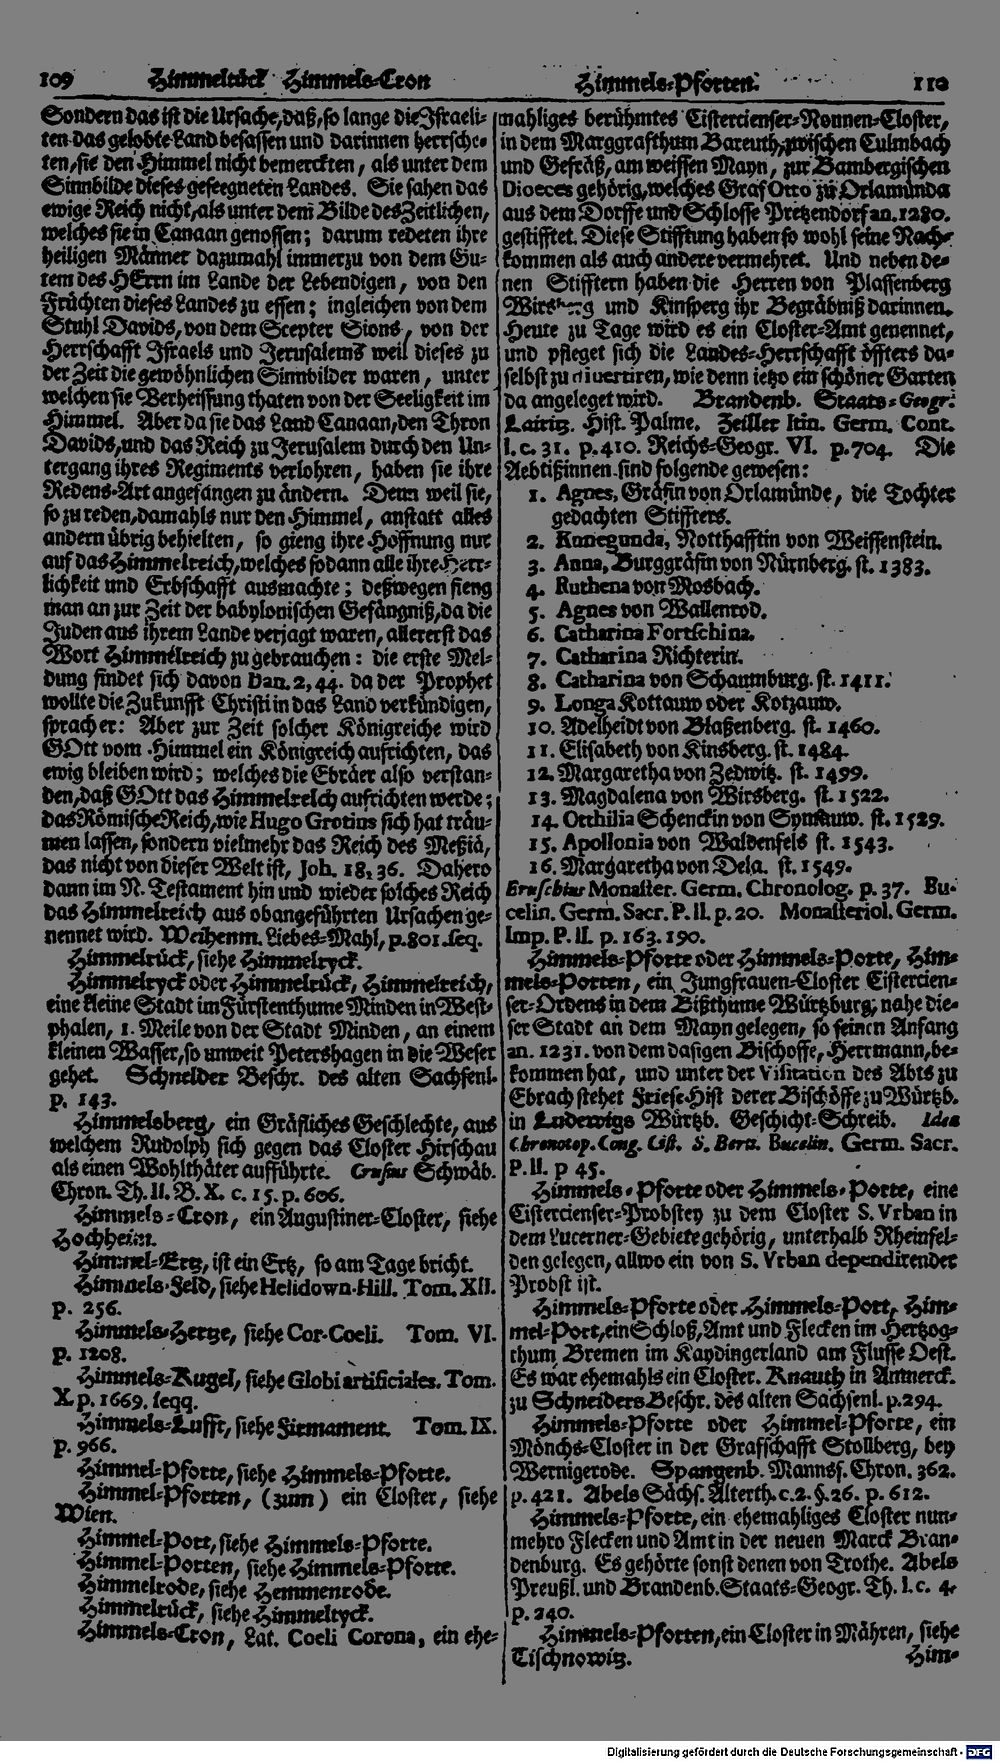 109 Himmelrück Himmels-Cron
Sondern das ist die Ursache, daß, so lange die Israeli-
ten das gelobte Land besassen und darinnen herrsche-
ten, sie den Himmel nicht bemerckten, als unter dem
Sinnbilde dieses geseegneten Landes. Sie sahen das
ewige Reich nicht, als unter dem Bilde des Zeitlichen,
welches sie in Canaan genossen; darum redeten ihre
heiligen Männer dazumahl immerzu von dem Gu-
tem des HErrn im Lande der Lebendigen, von den
Früchten dieses Landes zu essen; ingleichen von dem
Stuhl Davids, von dem Scepter Sions, von der
Herrschafft Israels und Jerusalems weil dieses zu
der Zeit die gewöhnlichen Sinnbilder waren, unter
welchen sie Verheissung thaten von der Seeligkeit im
Himmel. Aber da sie das Land Canaan, den Thron
Davids, und das Reich zu Jerusalem durch den Un-
tergang ihres Regiments verlohren, haben sie ihre
Redens-Art angefangen zu ändern. Denn weil sie,
so zu reden, damahls nur den Himmel, anstatt alles
andern übrig behielten, so gieng ihre Hoffnung nur
auf das Himmelreich, welches sodann alle ihre Herr-
lichkeit und Erbschafft ausmachte; deßwegen fieng
man an zur Zeit der babylonischen Gefängniß, da die
Juden aus ihrem Lande verjagt waren, allererst das
Wort Himmelreich zu gebrauchen: die erste Mel-
dung findet sich davon Dan. 2, 44. da der Prophet
wollte die Zukunfft Christi in das Land verkündigen,
sprach er: Aber zur Zeit solcher Königreiche wird
GOtt vom Himmel ein Königreich aufrichten, das
ewig bleiben wird; welches die Ebräer also verstan-
den, daß GOtt das Himmelreich aufrichten werde;
das Römische Reich, wie Hugo Grotius sich hat träu-
men lassen, sondern vielmehr das Reich des Meßiä,
das nicht von dieser Welt ist, Joh. 18, 36. Dahero
dann im N. Testament hin und wieder solches Reich
das Himmelreich aus obangeführten Ursachen ge-
nennet wird. Weihenm. Liebes-Mahl, p. 801. seq.
Himmelrück, siehe Himmelryck.
Himmelryck oder Himmelrück, Himmelreich,
eine kleine Stadt im Fürstenthume Minden in West-
phalen, 1. Meile von der Stadt Minden, an einem
kleinen Wasser, so unweit Petershagen in die Weser
gehet. Schneider Beschr. des alten Sachsenl.
p. 143.
Himmelsberg, ein Gräfliches Geschlechte, aus
welchem Rudolph sich gegen das Closter Hirschau
als einen Wohlthäter aufführte. Crusius Schwäb.
Chron. Th. II. B. X. c. 15. p. 606.
Himmels-Cron, ein Augustiner-Closter, siehe
Hochheim.
Himmel-Ertz, ist ein Ertz, so am Tage bricht.
Himmels-Feld, siehe Helidown-Hill. Tom. XII.
p. 256.
Himmels-Hertze, siehe Cor-Coeli. Tom. VI.
p. 1208.
Himmels-Kugel, siehe Globi artificiales. Tom.
X. p. 1669. seqq.
Himmels-Lufft, siehe Firmament. Tom. IX.
p. 966.
Himmel-Pforte, siehe Himmels-Pforte.
Himmel-Pforten, (zum) ein Closter, siehe
Wien.
Himmel-Port, siehe Himmels-Pforte.
Himmel-Porten, siehe Himmels-Pforte.
Himmelrode, siehe Hemmenrode.
Himmelrück, siehe Himmelryck.
Himmels-Cron, Lat. Coeli Corona, ein ehe-
Himmels-Pforten. 110
mahliges berühmtes Cistercienser-Nonnen-Closter,
in dem Marggrafthum Bareuth, zwischen Culmbach
und Gefräß, am weissen Mayn, zur Bambergischen
Dioeces gehörig, welches Graf Otto zu Orlamünda
aus dem Dorffe und Schlosse Pretzendorf an. 1280.
gestifftet. Diese Stifftung haben so wohl seine Nach-
kommen als auch andere vermehret. Und neben de-
nen Stifftern haben die Herren von Plassenberg
und Kinsperg ihr Begräbniß darinnen.
Heute zu Tage wird es ein Closter-Amt genennet,
und pfleget sich die Landes-Herrschafft öffters da-
selbst zu divertiren, wie denn ietzo ein schöner Garten
da angeleget wird. Brandenb. Staats-Geogr.
Lairitz. Hist. Palme. Zeiller Itin. Germ. Cont.
I. c. 31. p. 410. Reichs-Geogr. VI. p. 704. Die
Aebtißinnen sind folgende gewesen:
1. Agnes, Gräfin von Orlamünde, die Tochter
gedachten Stiffters.
2. Kunegunda, Notthafftin von Weissenstein.
3. Anna, Burggräfin von Nürnberg. st. 1383.
4. Ruthena von Mosbach.
5. Agnes von Wallenrod.
6. Catharina Fortschina.
7. Catharina Richterin.
8. Catharina von Schaumburg. st. 1411.
9. Longa Kottauw oder Kotzauw.
10. Adelheidt von Blaßenberg. st. 1460.
11. Elisabeth von Kinsberg. st. 1484.
12. Margaretha von Zedwitz. st. 1499.
13. Magdalena von Wirsberg. st. 1522.
14. Otthilia Schenckin von st. 1529.
15. Apollonia von Waldenfels st. 1543.
16. Margaretha von Dela. st. 1549.
Bruschius Monaster. Germ. Chronolog. p. 37. Bu-
celin. Germ. Sacr. P. II. p. 20. Monasteriol. Germ.
Imp. P. II. p. 163. 190.
Himmels-Pforte oder Himmels-Porte, Him-
mels-Porten, ein Jungfrauen-Closter Cistercien-
ser-Ordens in dem Bißthume Würtzburg, nahe die-
ser Stadt an dem Mayn gelegen, so seinen Anfang
an. 1231. von dem dasigen Bischoffe, Herrmann, be-
kommen hat, und unter der Visitation des Abts zu
Ebrach stehet Friese Hist derer Bischöffe zu Würtzb.
in Ludewigs Würtzb. Geschicht-Schreib. Idea
Chronotop. Cong. Cist. S. Bern. Bucelin. Germ. Sacr.
P. II. p 45.
Himmels-Pforte oder Himmels-Porte, eine
Cistercienser-Probstey zu dem Closter S. Vrban in
dem Lucerner-Gebiete gehörig, unterhalb Rheinfel-
den gelegen, allwo ein von S. Vrban dependirender
Probst ist.
Himmels-Pforte oder Himmels-Port, Him-
mel-Port, ein Schloß, Amt und Flecken im Hertzog-
thum Bremen im Kaydingerland am Flusse Oest.
Es war ehemahls ein Closter. Knauth in Anmerck.
zu Schneiders Beschr. des alten Sachsenl. p. 294.
Himmels-Pforte oder Himmel-Pforte, ein
Mönchs-Closter in der Grafschafft Stollberg, bey
Wernigerode. Spangenb. Mannsf. Chron. 362.
p. 421. Abels Sächs. Alterth. c. 2. §. 26. p. 612.
Himmels-Pforte, ein ehemahliges Closter nun-
mehro Flecken und Amt in der neuen Marck Bran-
denburg. Es gehörte sonst denen von Trothe. Abels
Preußl. und Brandenb. Staats-Geogr. Th. I. c. 4.
p. 240.
Himmels-Pforten, ein Closter in Mähren, siehe
Tischnowitz.
Him-
Digitalisierung gefördert durch die Deutsche Forschungsgemeinschaft - DFG